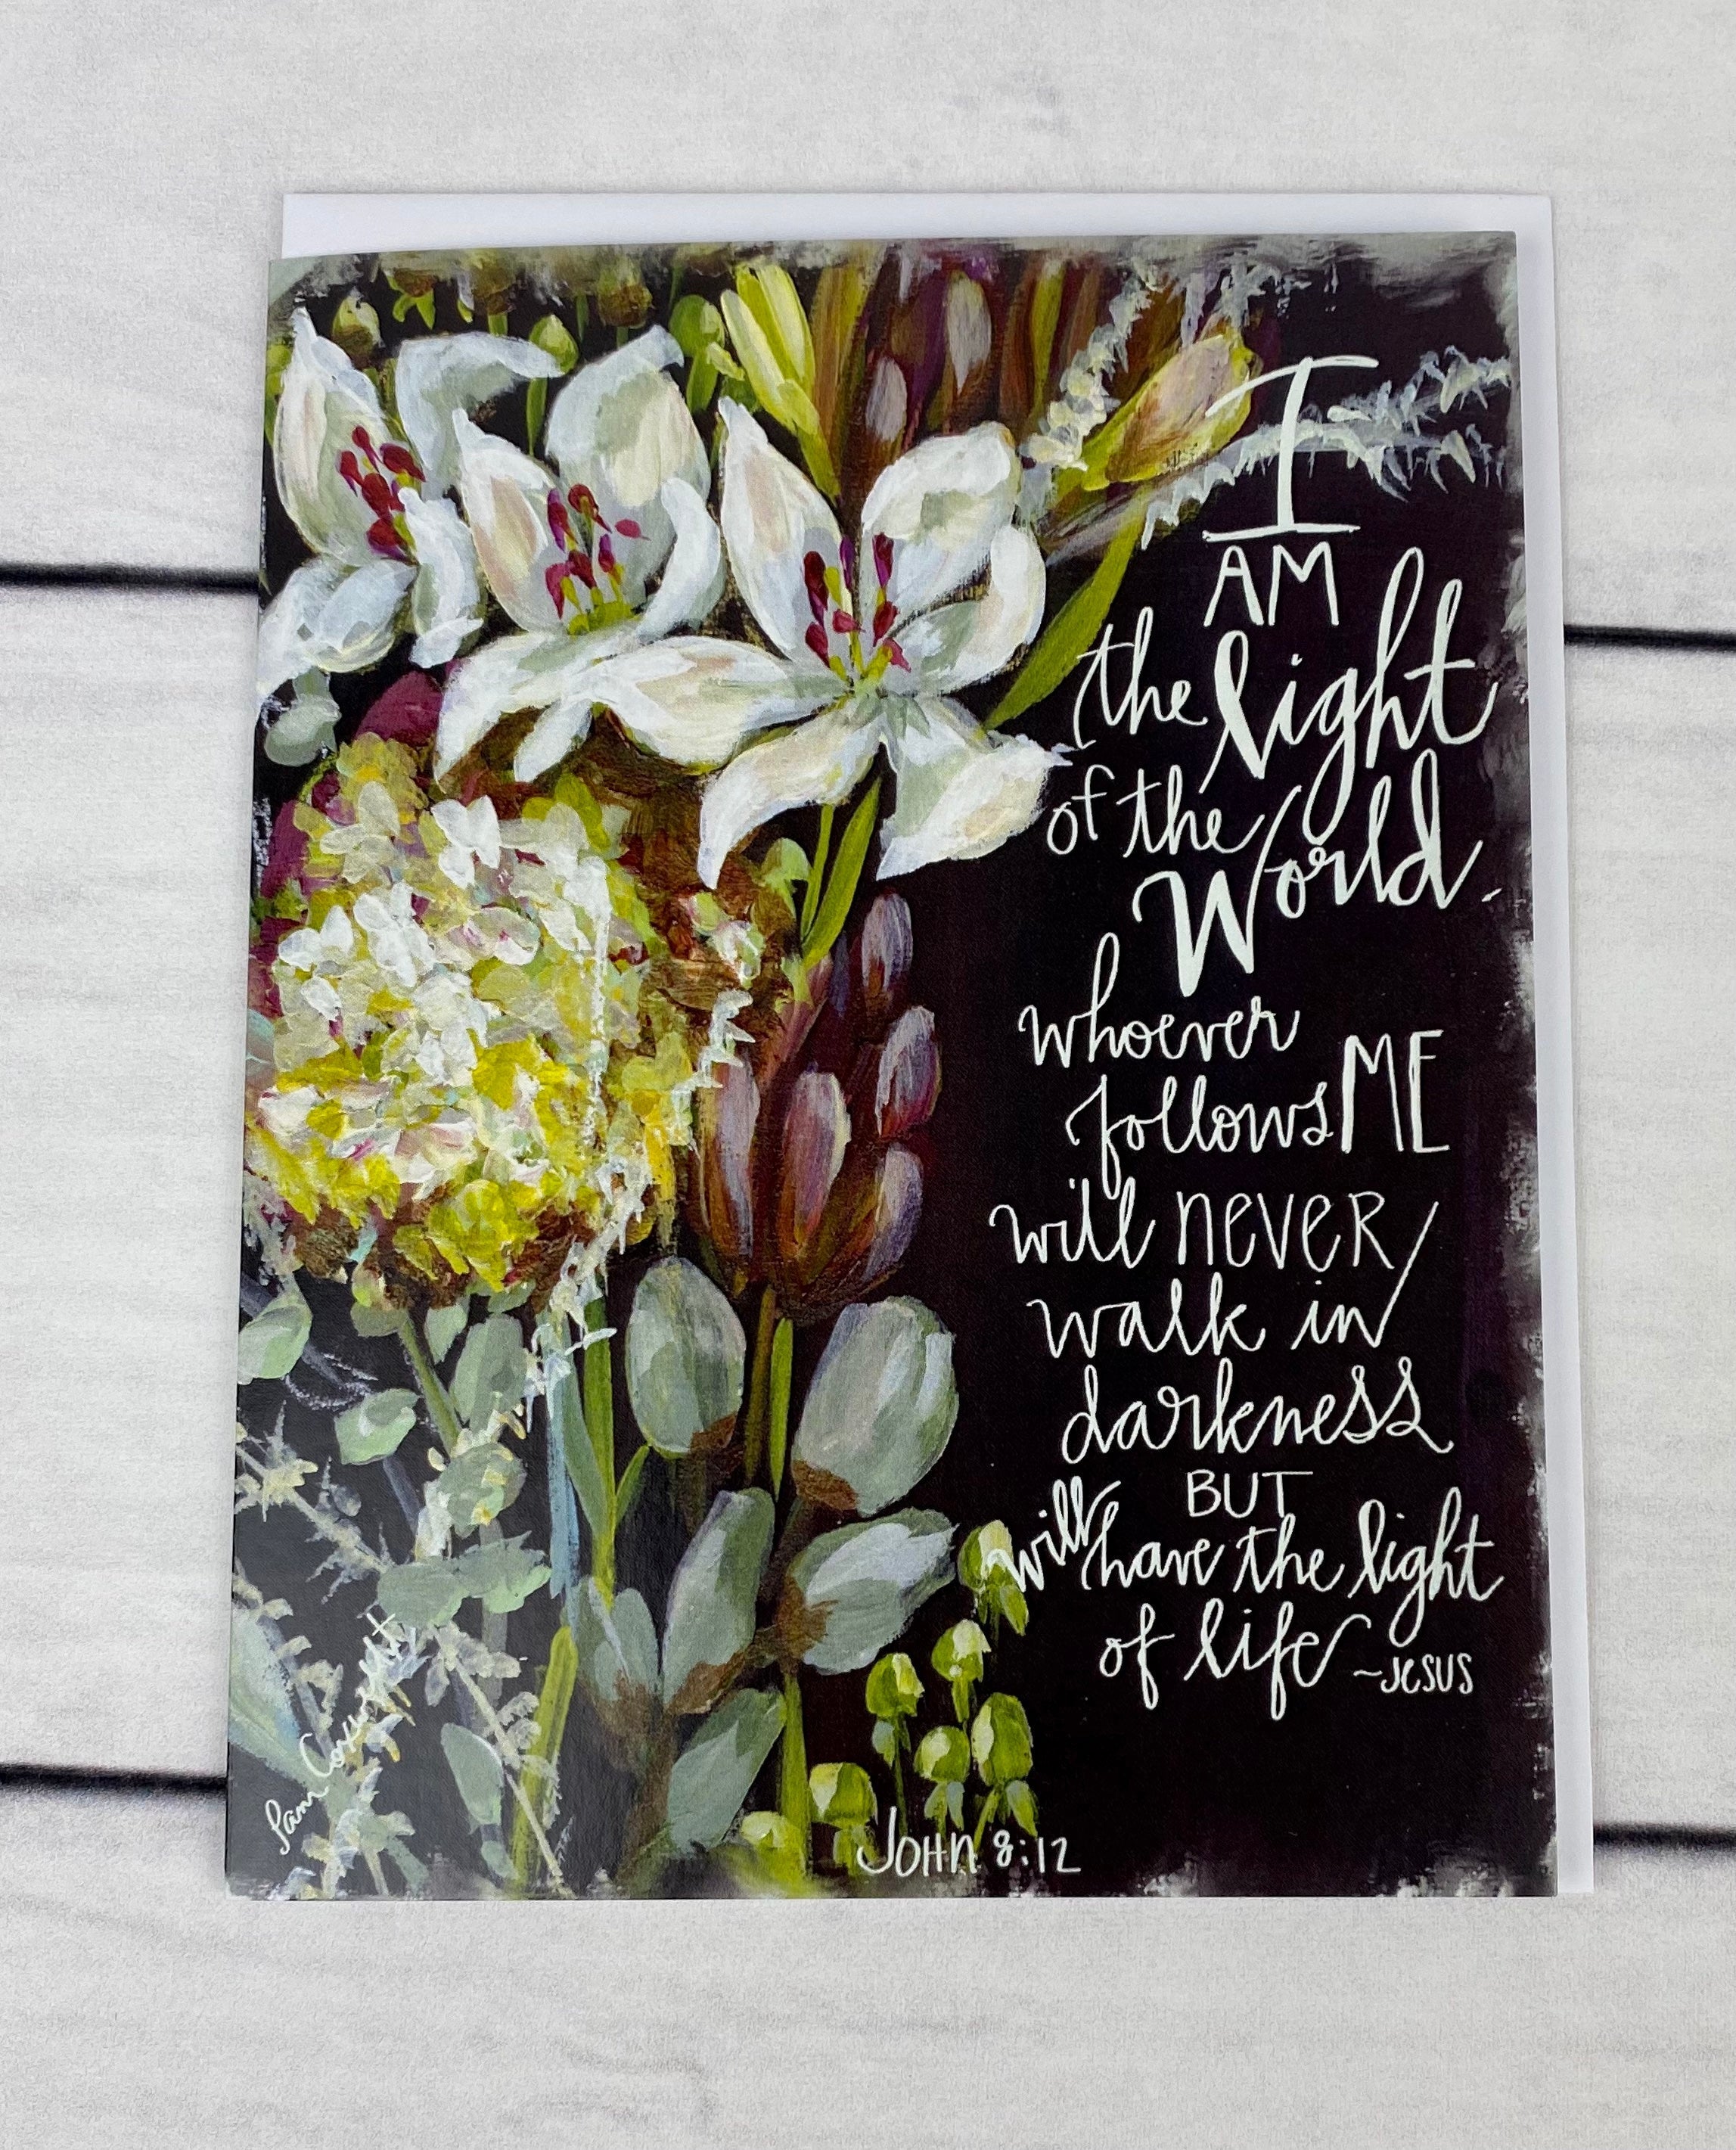 I
AM
the light
of the
World.
whoever
follows ME
will never
walk in
darkness
BUT
will have the light
of life
~Jesus
John 8:12
Pam Coxwell